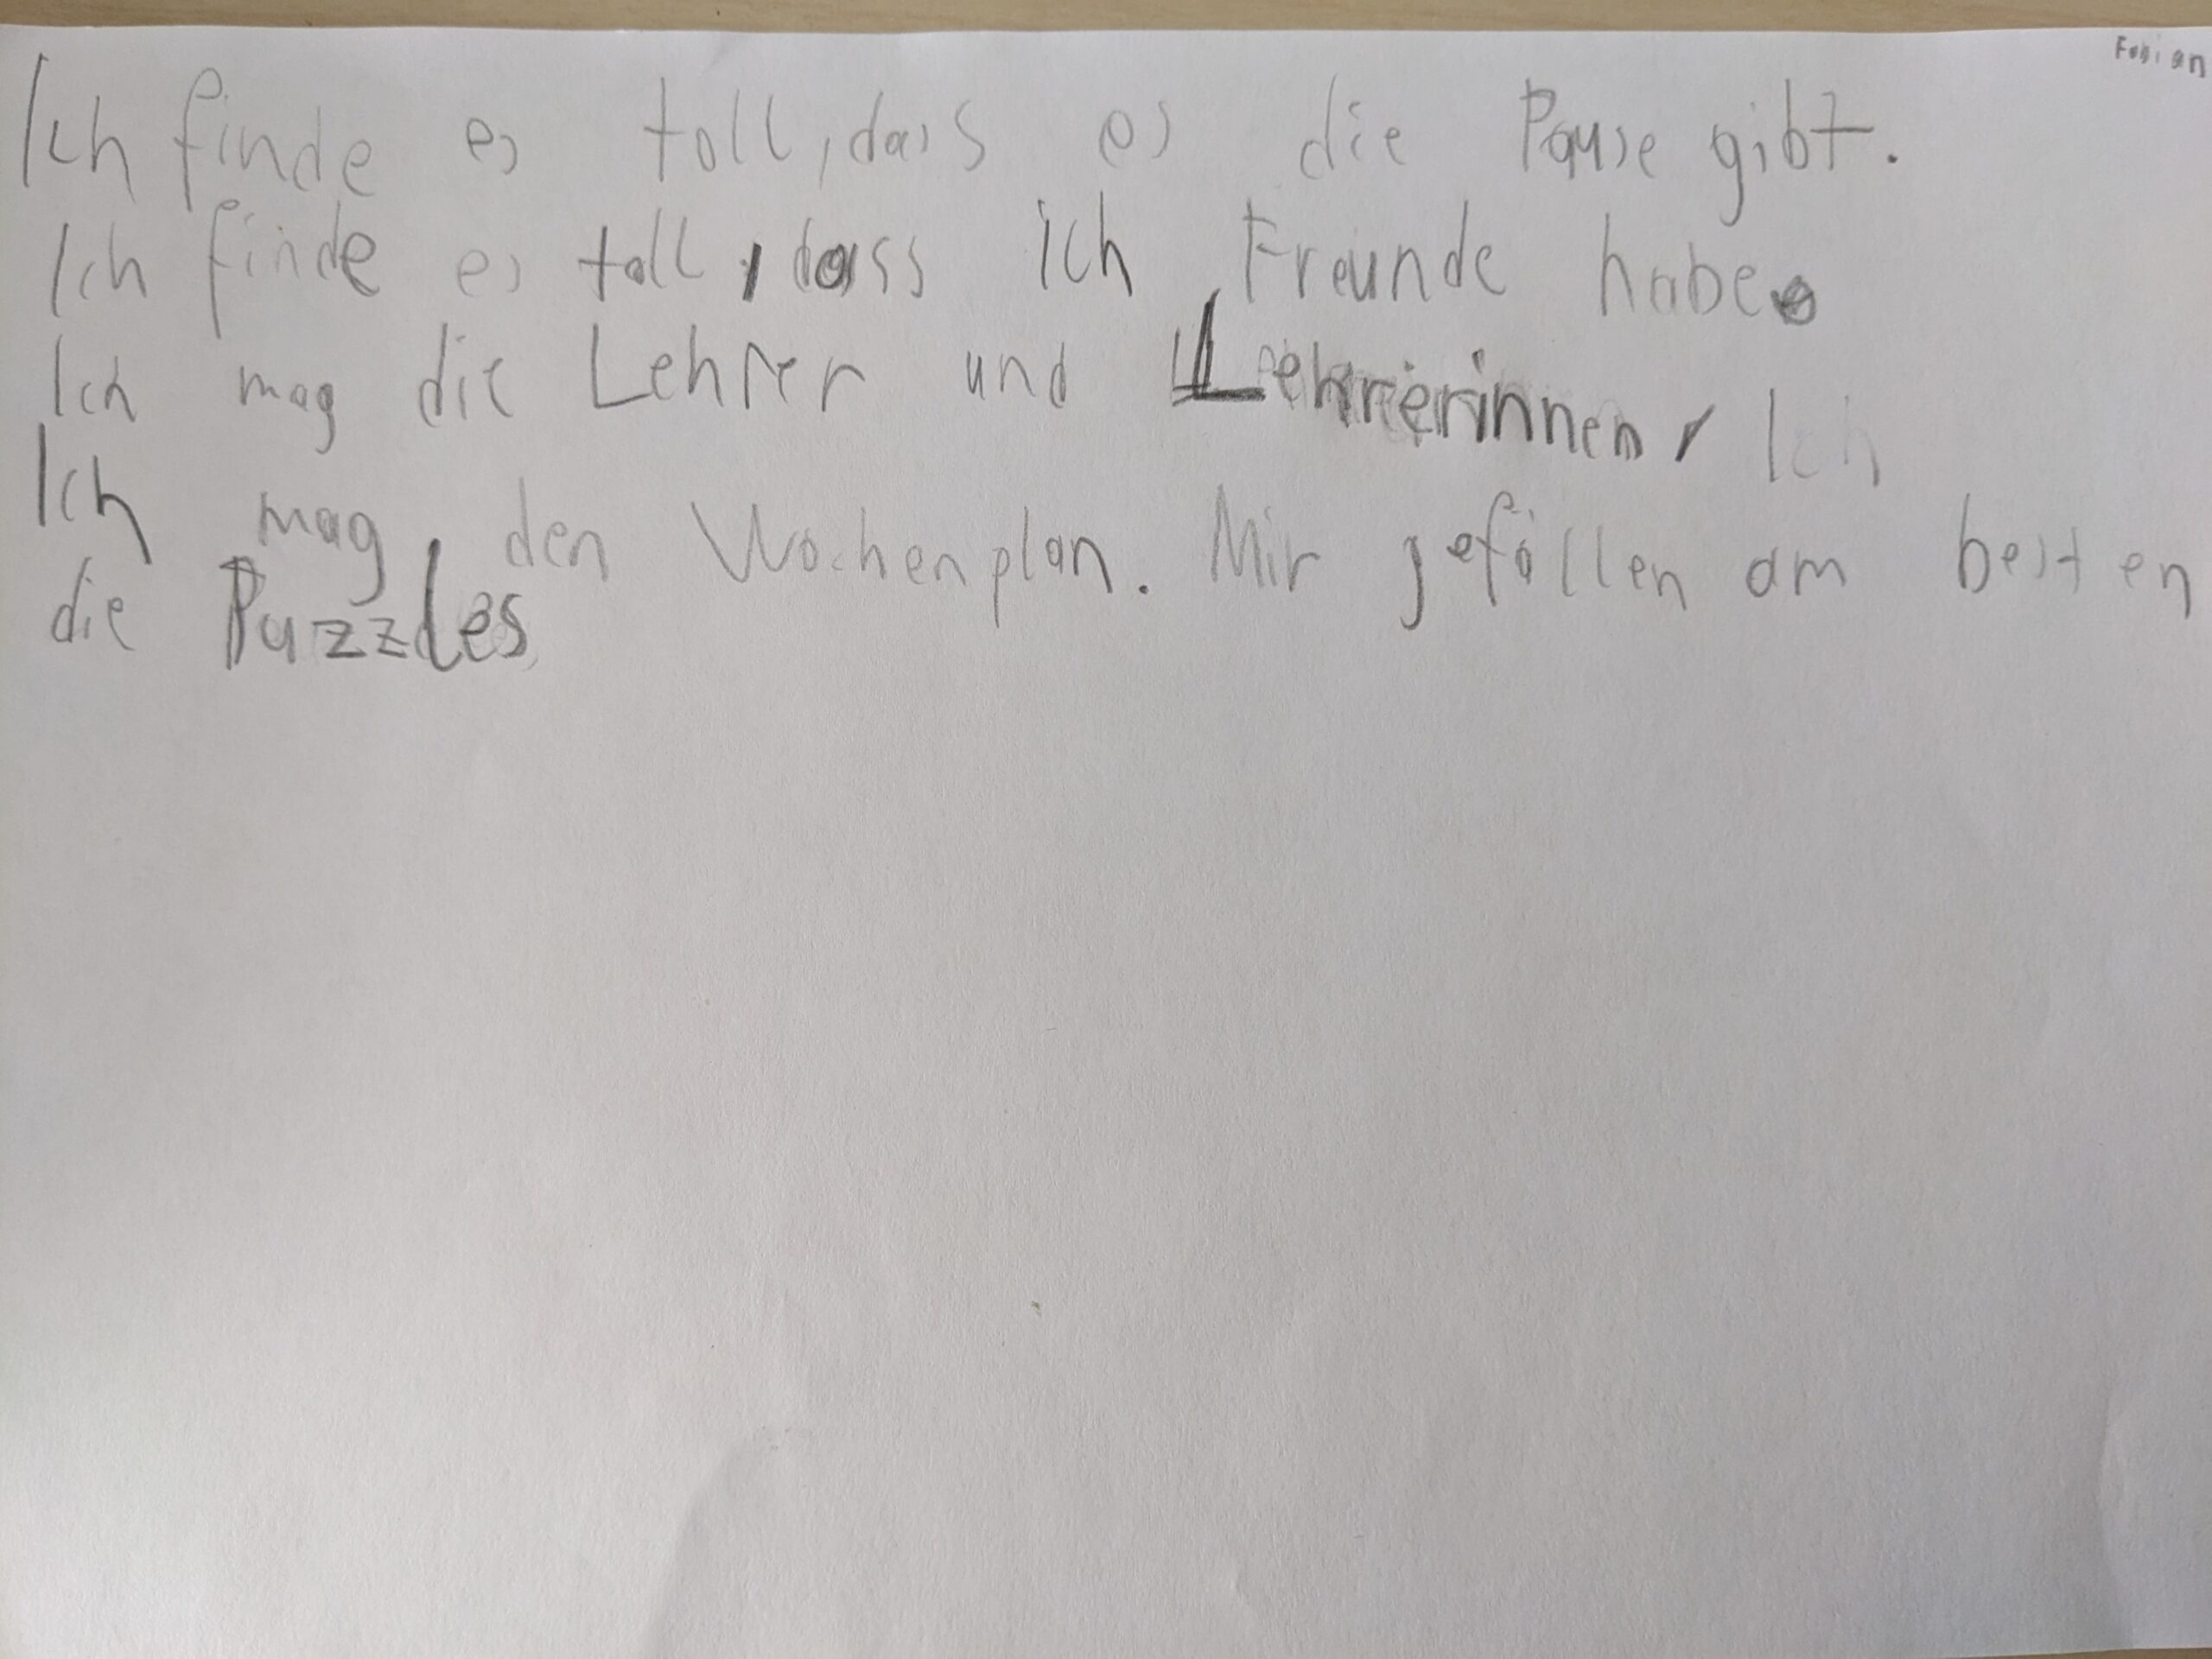 Fabian
Ich finde es toll, dass es die Pause gibt.
Ich finde es toll, dass ich Freunde habe.
Ich mag die Lehrer und Lehrerinnen, Ich
Ich mag den Wochenplan. Mir gefallen am besten
die Puzzles